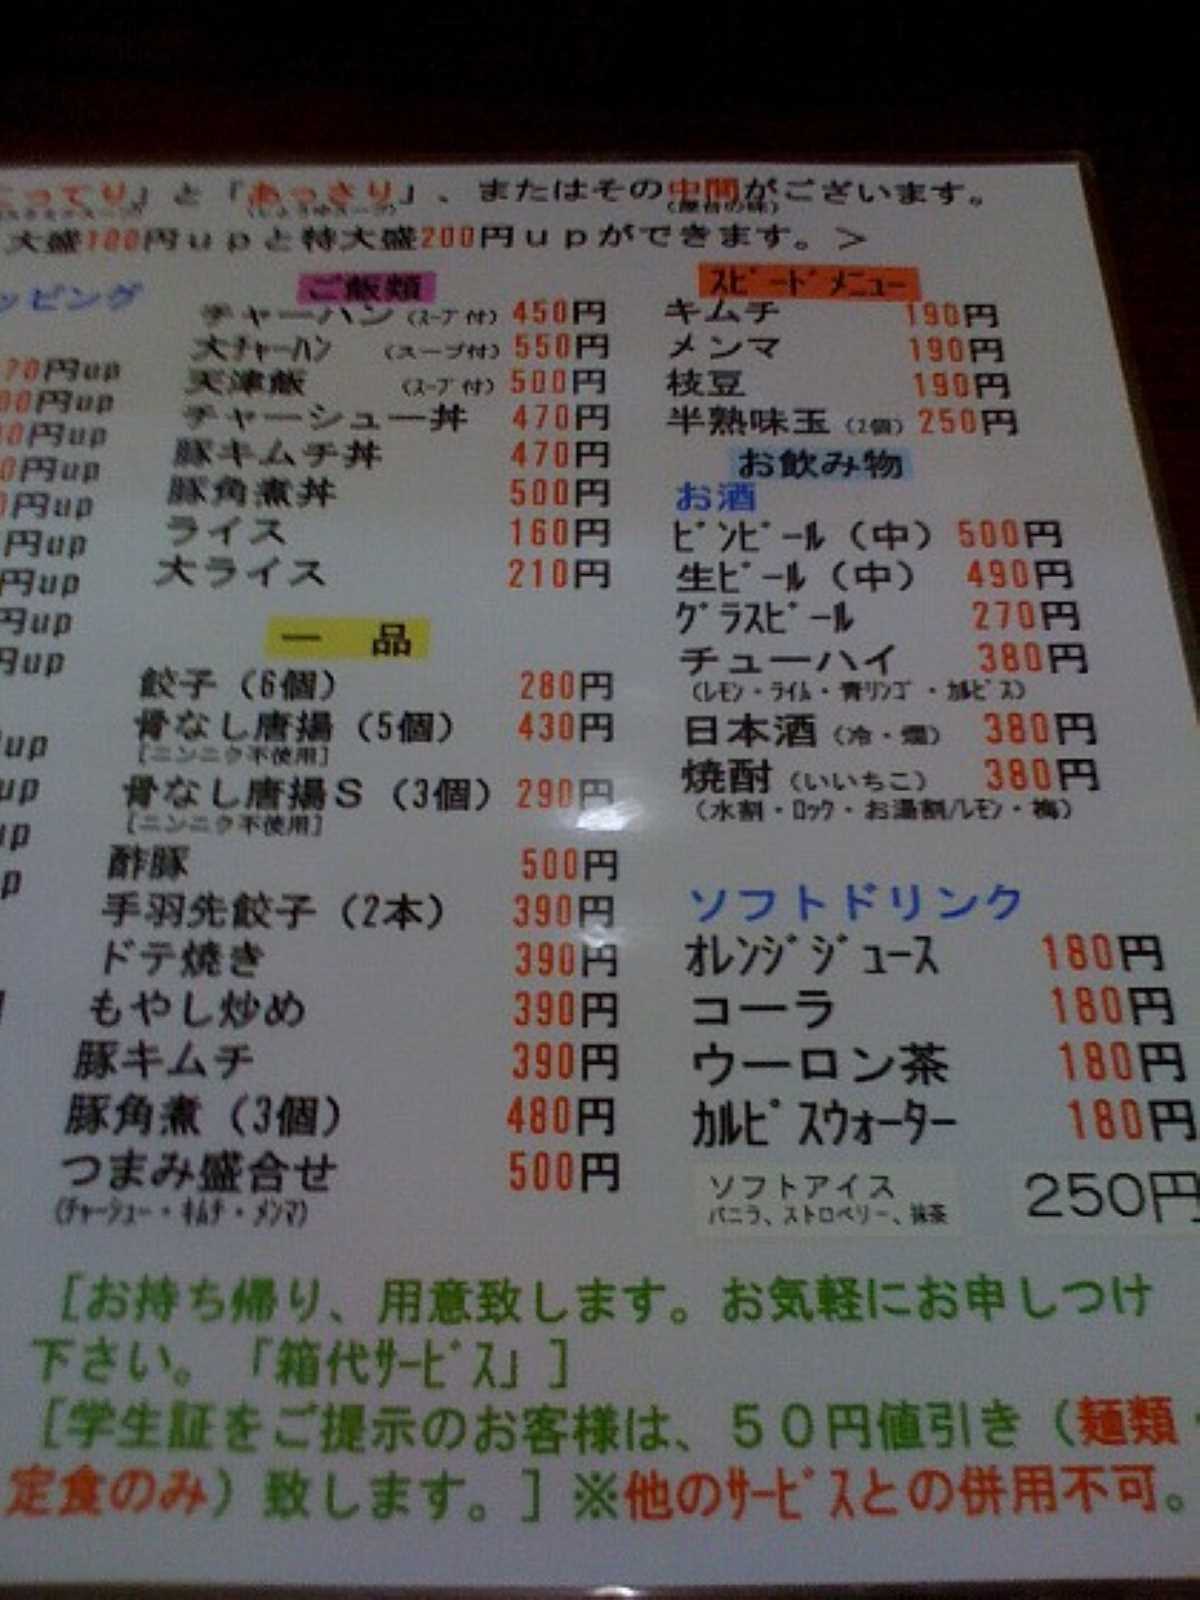 こってり」と「あっさり」、またはその中間がございます。
(しょうゆスープ) (屋台の味)
大盛100円upと特大盛200円upができます。＞
ッピング
70円up
00円up
00円up
0円up
0円up
円up
円up
円up
円up
up
up
up
p
ご飯類
チャーハン (ｽｰﾌﾟ付) 450円
大ﾁｬｰﾊﾝ (スープ付) 550円
天津飯 (ｽｰﾌﾟ付) 500円
チャーシュー丼 470円
豚キムチ丼 470円
豚角煮丼 500円
ライス 160円
大ライス 210円
一 品
餃子 (6個) 280円
骨なし唐揚 (5個) 430円
[ニンニク不使用]
骨なし唐揚Ｓ (3個) 290円
[ニンニク不使用]
酢豚 500円
手羽先餃子 (2本) 390円
ドテ焼き 390円
もやし炒め 390円
豚キムチ 390円
豚角煮 (3個) 480円
つまみ盛合せ 500円
(ﾁｬｰｼｭｰ・ｷﾑﾁ・ﾒﾝﾏ)
ｽﾋﾟｰﾄﾞﾒﾆｭｰ
キムチ 190円
メンマ 190円
枝豆 190円
半熟味玉 (2個) 250円
お飲み物
お酒
ﾋﾞﾝﾋﾞｰﾙ (中) 500円
生ﾋﾞｰﾙ (中) 490円
ｸﾞﾗｽﾋﾞｰﾙ 270円
チューハイ 380円
(ﾚﾓﾝ・ﾗｲﾑ・青ﾘﾝｺﾞ・ｶﾙﾋﾟｽ)
日本酒 (冷・燗) 380円
焼酎 (いいちこ) 380円
(水割・ﾛｯｸ・お湯割/ﾚﾓﾝ・梅)
ソフトドリンク
ｵﾚﾝｼﾞｼﾞｭｰｽ 180円
コーラ 180円
ウーロン茶 180円
ｶﾙﾋﾟｽｳｫｰﾀｰ 180円
ソフトアイス 250円
バニラ、ストロベリー、抹茶
[お持ち帰り、用意致します。お気軽にお申しつけ
下さい。「箱代ｻｰﾋﾞｽ」]
[学生証をご提示のお客様は、５０円値引き（麺類・
定食のみ）致します。]※他のｻｰﾋﾞｽとの併用不可。